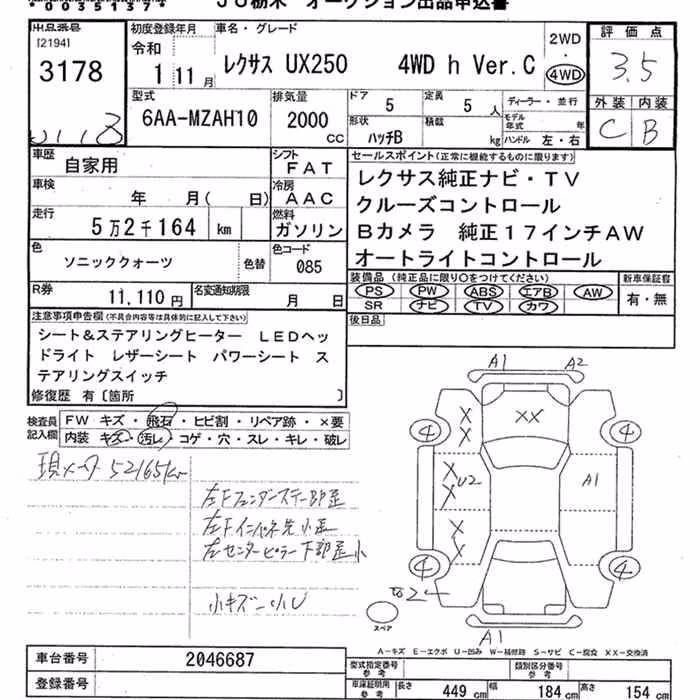 *0035137*
JU栃木 オークション出品申込書
出品番号
[2194]
3178
初度登録年月
令和
1 11月
車名・グレード
レクサス UX250 4WD h Ver.C
2WD
・
4WD
評価点
3.5
外装 内装
C B
型式
6AA-MZAH10
排気量
2000
CC
ドア
5
定員
5 人
ディーラー・並行
形状
ハッチB
積載
kg
モデル年式 年
ハンドル 左・右
車歴
自家用
シフト
FAT
車検
年 月( 日)
冷房
AAC
走行
5万2千164 km
燃料
ガソリン
色
ソニッククォーツ
色替
色コード
085
R券
11,110円
名変通知期限
月 日
セールスポイント(正常に機能するものに限ります)
レクサス純正ナビ・TV
クルーズコントロール
Bカメラ 純正17インチAW
オートライトコントロール
装備品(純正品に限り○をつけてください)
PS PW ABS エアB AW
SR ナビ TV カワ
新車保証書
有・無
後日品
注意事項申告欄(不具合内容等は具体的に記入して下さい)
シート&ステアリングヒーター LEDヘッ
ドライト レザーシート パワーシート ス
テアリングスイッチ
修復歴 有〔箇所 〕
検査員
記入欄
FW キズ・飛石・ヒビ割・リペア跡・×要
内装 キズ・汚レ・コゲ・穴・スレ・キレ・破レ
現メータ 52165km
左Fフェンダーステー部歪
左Fインパネ先小歪
左センターピラー下部歪小
小キズ 小U
A1 A2
X X XX
4 4
X U2 X A1
X X
4 4
2
スペア
A1
A-キズ E-エクボ U-凹み W-補修跡 S-サビ C-腐食 XX-交換済
車台番号
2046687
登録番号
型式指定番号
参考
類別区分番号
参考
車庫証明用
参考
長さ 449 cm
幅 184 cm
高さ 154 cm